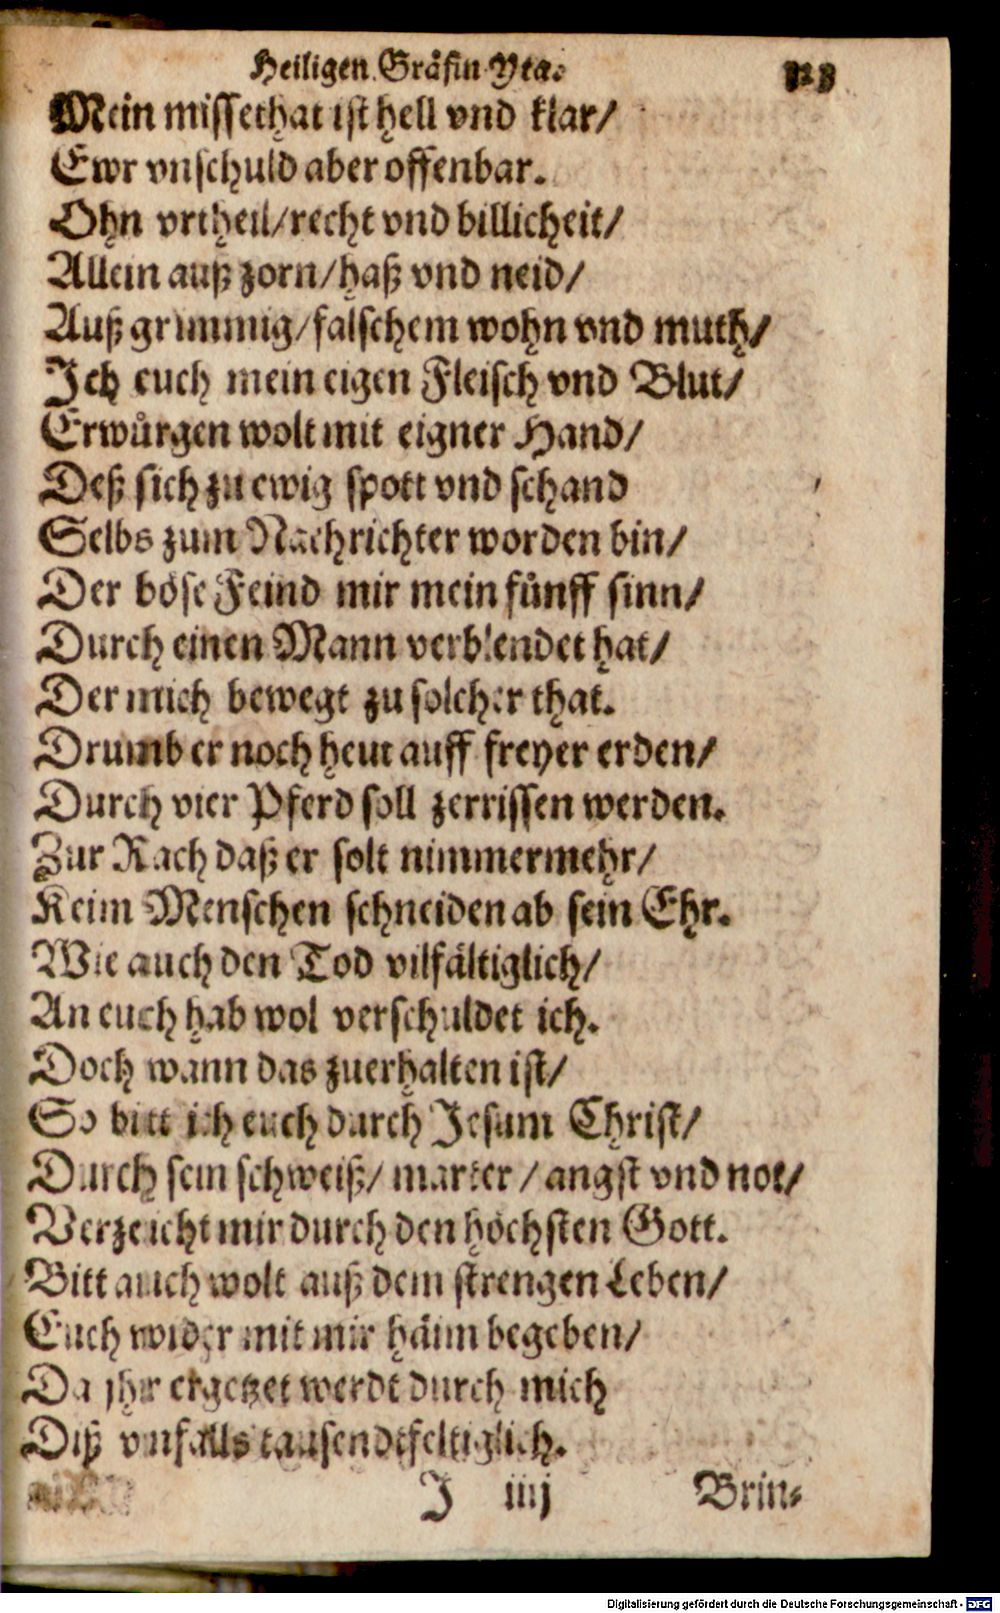 Heiligen Gräfin Yta.
Mein missethat ist hell vnd klar/
Ewr vnschuld aber offenbar.
Ohn vrtheil/recht vnd billicheit/
Allein auß zorn/haß vnd neid/
Auß grimmig/falschem wohn vnd muth/
Ich euch mein eigen Fleisch vnd Blut/
Erwůrgen wolt mit eigner Hand/
Deß sich zu ewig spott vnd schand
Selbs zum Nachrichter worden bin/
Der böse Feind mir mein fůnff sinn/
Durch einen Mann verblendet hat/
Der mich bewegt zu solcher that.
Drumb er noch heut auff freyer erden/
Durch vier Pferd soll zerrissen werden.
Zur Rach daß er solt nimmermehr/
Keim Menschen schneiden ab sein Ehr.
Wie auch den Tod vilfältiglich/
An euch hab wol verschuldet ich.
Doch wann das zuerhalten ist/
So bitt ich euch durch Jesum Christ/
Durch sein schweiß/ marter / angst vnd not/
Verzeicht mir durch den höchsten Gott.
Bitt auch wolt auß dem strengen Leben/
Euch wider mit mir häim begeben/
Da jhr ergetzet werdt durch mich
Diß vnfalls tausendtfeltiglich.
J iiij Brin-
Digitalisierung gefördert durch die Deutsche Forschungsgemeinschaft - DFG